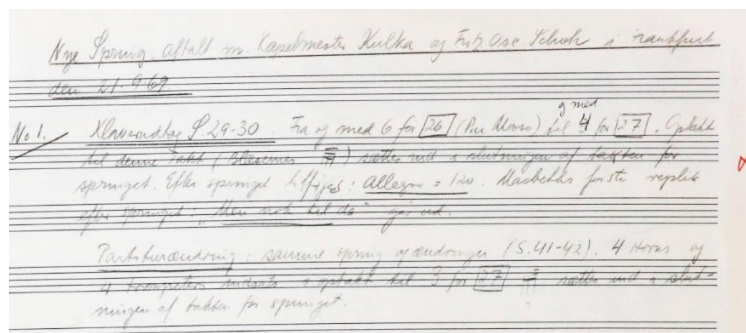 Nye Spring, aftalt m. Kapelmester Kulka og Fritz Osc. Schuh i Frankfurt
den 21-9-69.
og med
No 1. Klaverudtog S. 29-30. Fra og med 6 før 26 (Piu Mosso) til 4 før 27. Optakt
til denne takt (blæsernes) sættes ind i slutningen af takten før
springet. Efter springet tilføjes: Allegro = 120. Macbeths første replik
efter springet: "Men nok til då" går ud.
Partiturændring: samme spring og ændringer (S. 41-42). 4 Horns og
4 trompeters indsats i optakt til 3 før 27 sættes ind i slut-
ningen af takten før springet.